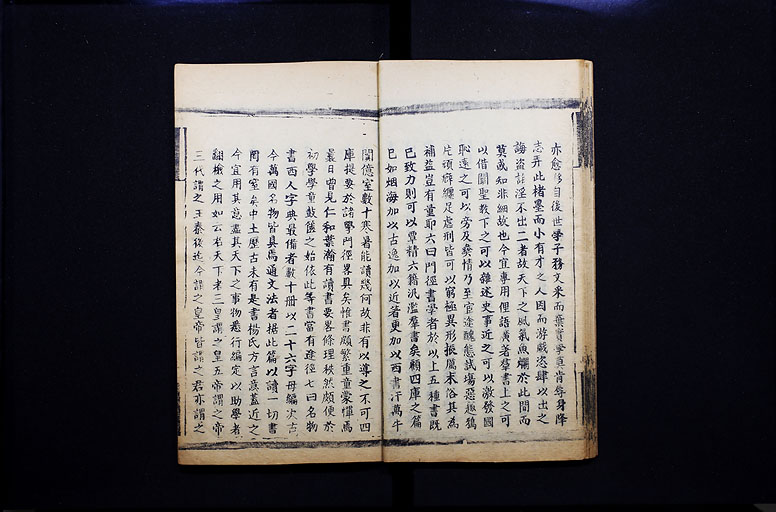 亦愈多自後世學子務文采而棄實學莫肯辱身降
志弄此楮墨而小有才之人因而游戲恣肆以出之
誨盜誨淫不出二者故天下之風氣魚爛於此間而
莫或知非細故也今宜專用俚語廣著羣書上之可
以借闡聖教下之可以雜述史事近之可以激發國
恥遠之可以旁及彝情乃至宦途醜態試場惡趣鴉
片頑癖纏足虐刑皆可以窮極異形振厲末俗其為
補益豈有量耶六曰門徑書學者於以上五種書既
已致力則可以覃精六籍汎濫羣書矣顧四庫之篇
已如烟海加以古逸加以近著更加以西書汗萬牛
闐億室數十寒暑能讀幾何故非有以導之不可四
庫提要於諸學門徑畧具矣惟書頗繁重童蒙憚焉
曩日曾見仁和葉瀚有讀書要畧條理秩然頗便於
初學學童鼓篋之始依此等書當有途徑七曰名物
書西人字典最備者數十冊以二十六字母編次古
今萬國名物皆具焉通文法者據此篇以讀一切書
罔有窒矣中土歷古未有是書楊氏方言意蓋近之
今宜用其意盡其天下之事物悉行編定以助學者
翻檢之用如云君天下者三皇謂之皇五帝謂之帝
三代謂之王秦後迄今謂之皇帝皆謂之君亦謂之